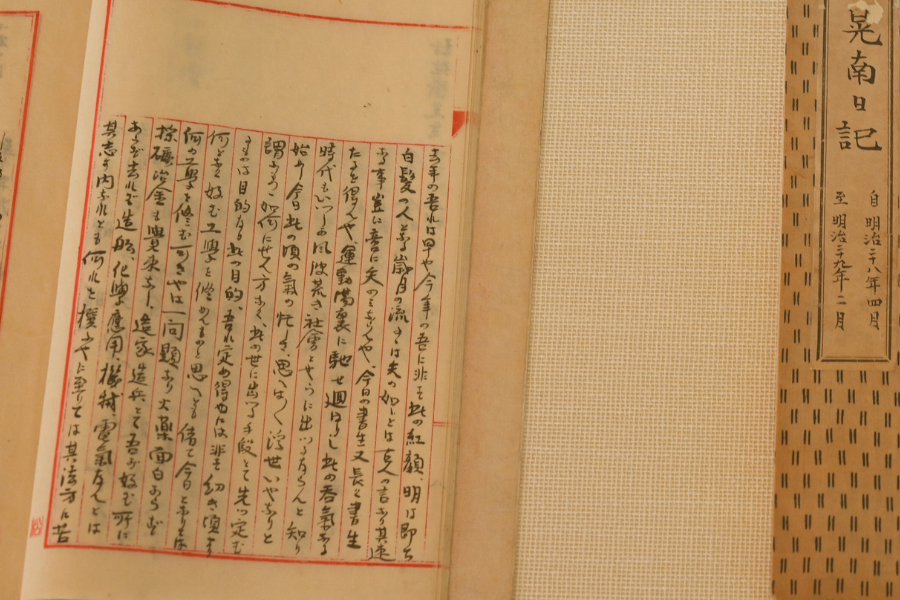 晃南日記
自 明治二十八年四月
至 明治二十九年二月
去年の吾れは早や今年の吾に非ず此の紅顔、明は即ち
白髪の人となる歳月の流るゝは矢の如しとは古人の言なり其速
なる事豈に啻に矢のみならんや、今日の書生又長く書生
たるを得んや、運動場裏に馳せ廻はりし此の呑氣なる
時代もいつしか風波荒き社會とやらに出づるならんと知り
始めり今日此の頃の氣の忙しき、思へば 浮世いやなりと
謂ふも如何にせん方なく、此の世に出づる手段とて先づ定む
るは目的なり此の目的、吾れ定め得るには非ず幼き頃より
何となく好む工學を修めんものと思へども偖て今日となりては
何の工學を修む可きやは一問題なり火藥面白からず
採礦冶金も覺束なし、造家造兵とて吾が好む所に
あらず去れば造船、化學應用、機械、電氣なんとは
其志の内なれども何れを撰ぶやに至りては其法方に苦